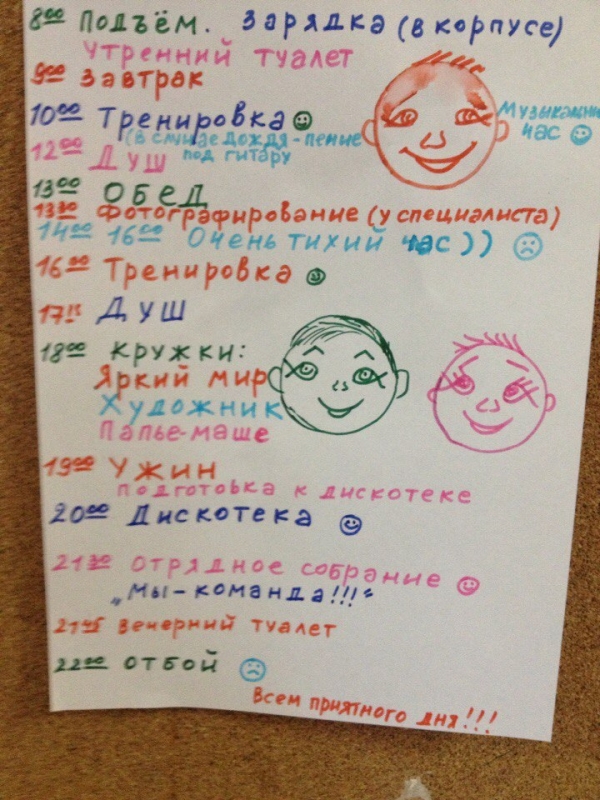 8⁰⁰ Подъём. Зарядка (в корпусе)
Утренний туалет
9⁰⁰ Завтрак
10⁰⁰ Тренировка
(в случае дождя - пение
под гитару
Музыкальный
час
12⁰⁰ Душ
13⁰⁰ Обед
13³⁰ Фотографирование (у специалиста)
14⁰⁰ 16⁰⁰ Очень тихий час))
16⁰⁰ Тренировка
17¹⁵ Душ
18⁰⁰ Кружки:
Яркий мир
Художник
Папье-маше
19⁰⁰ Ужин
подготовка к дискотеке
20⁰⁰ Дискотека
21³⁰ Отрядное собрание
„Мы - команда!!!“
21⁴⁵ Вечерний туалет
22⁰⁰ Отбой
Всем приятного дня!!!